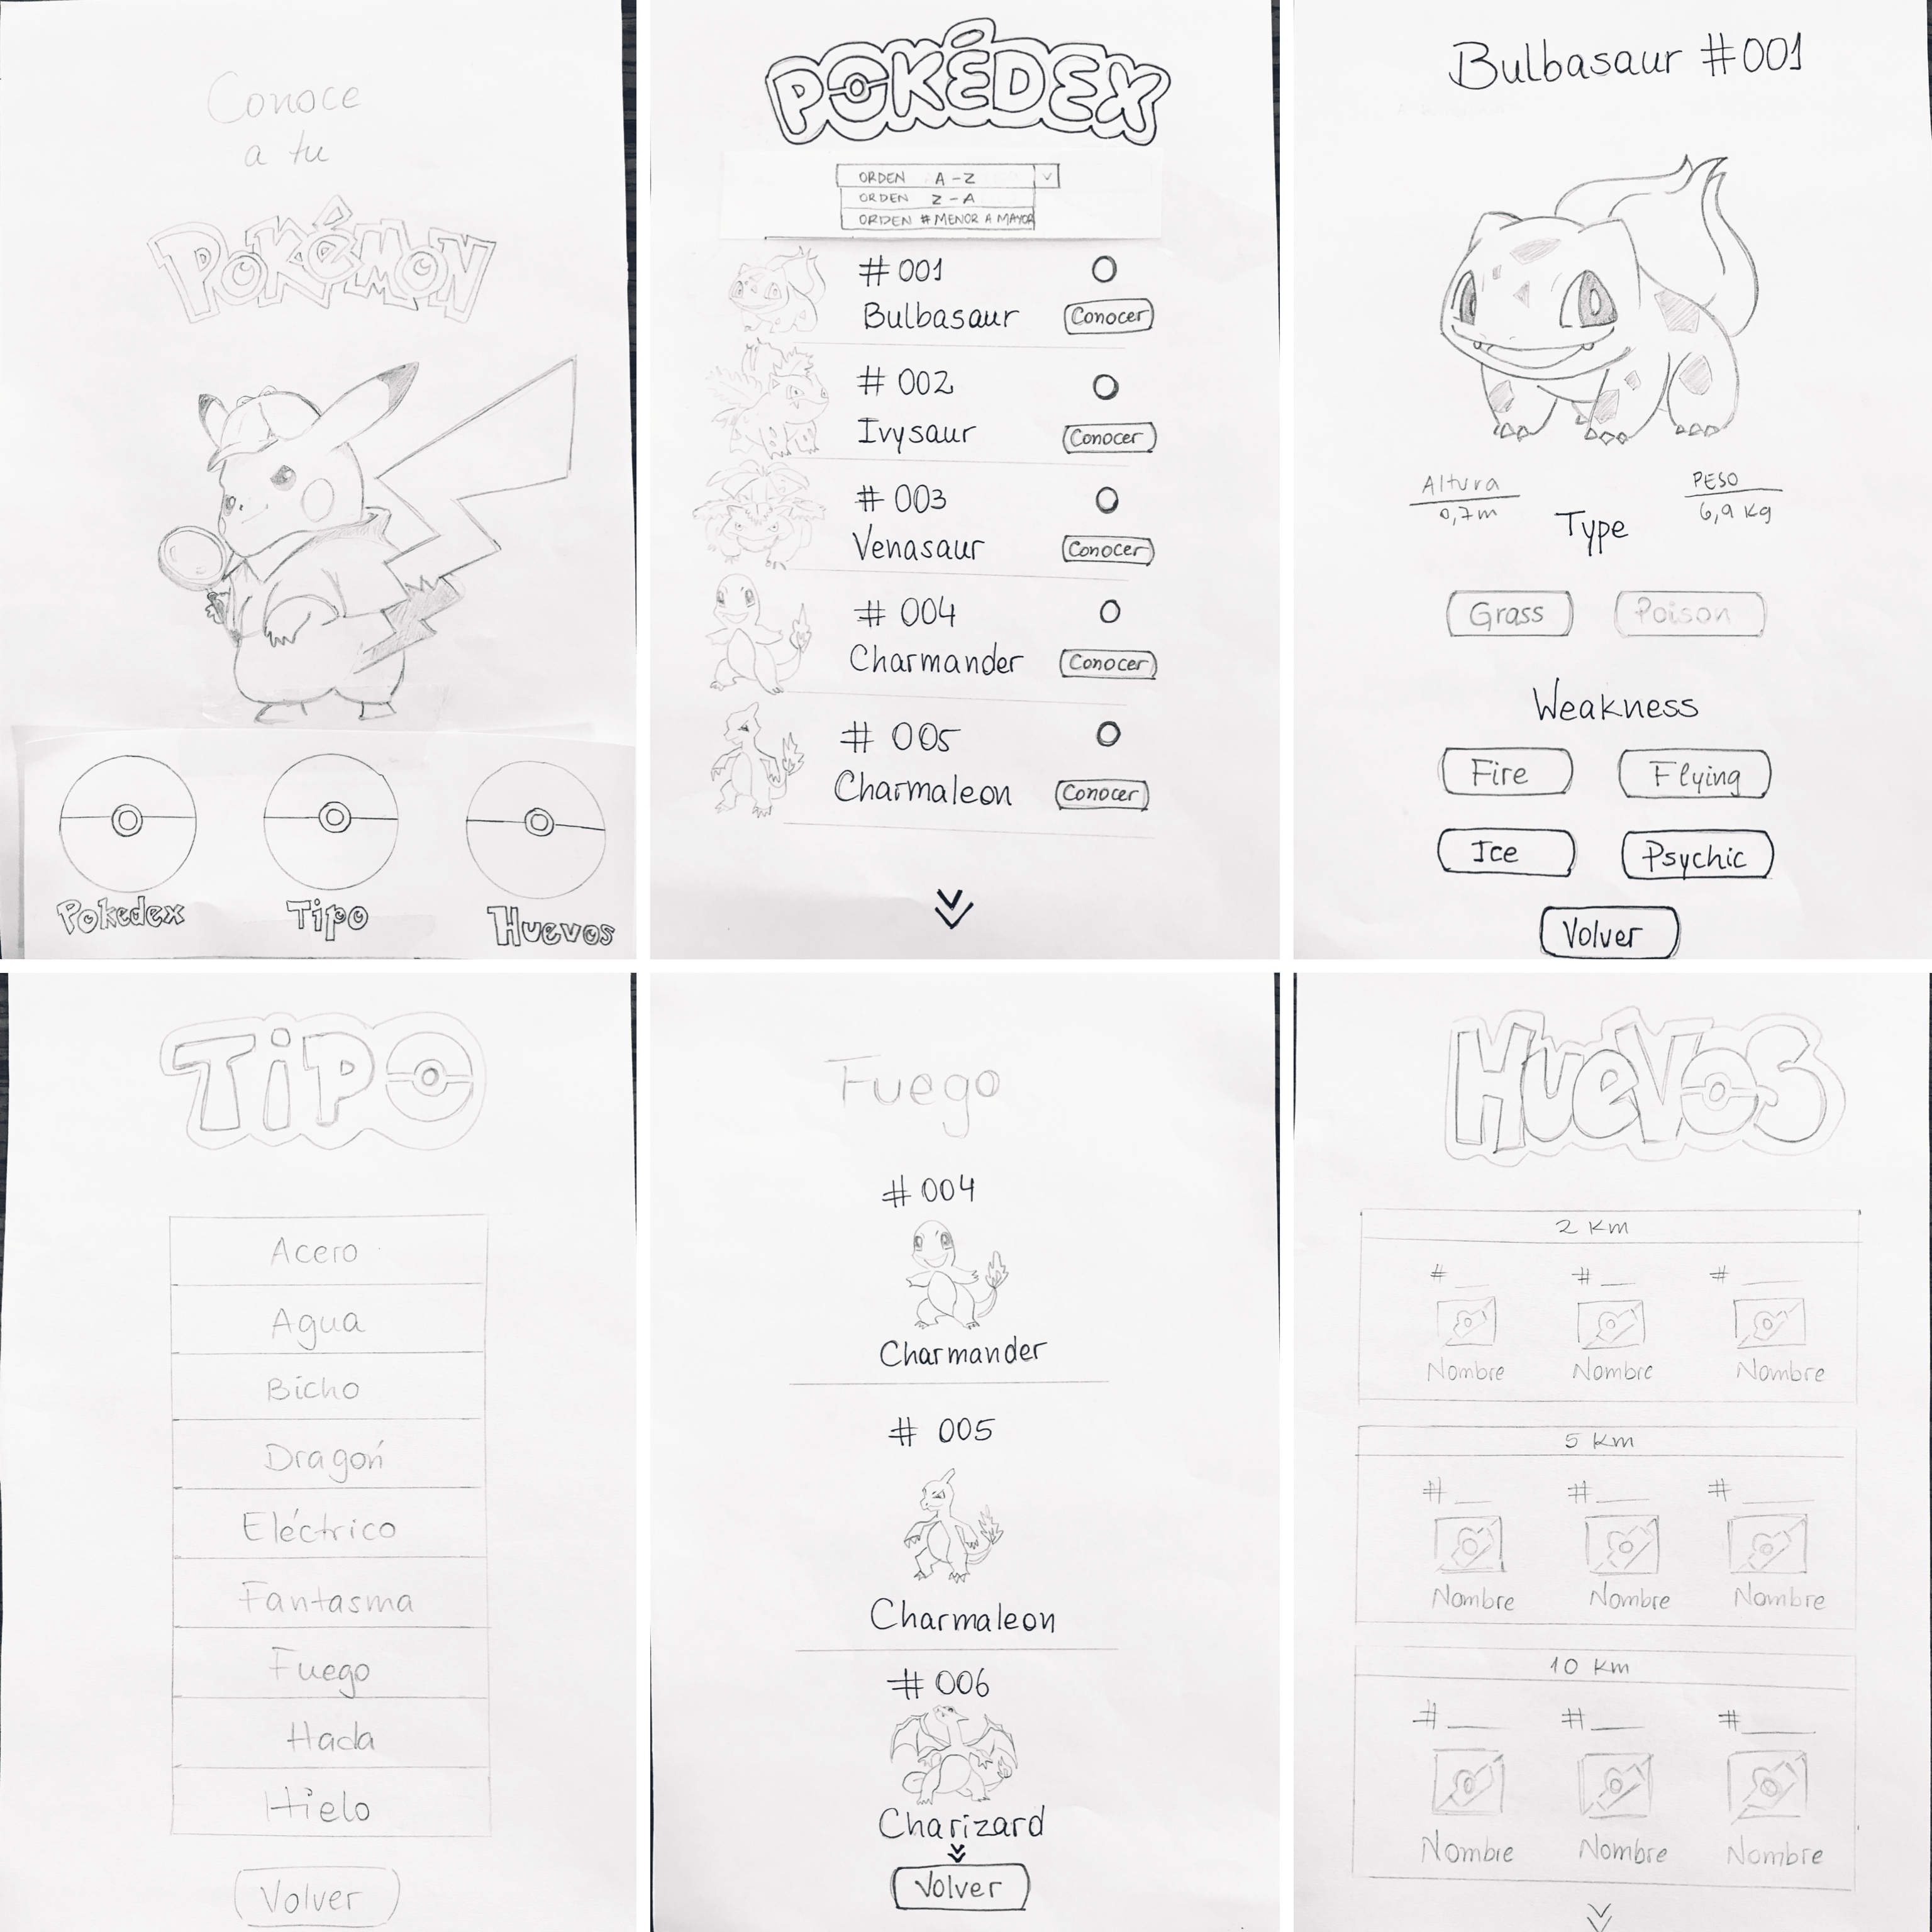 Conoce
a tu
POKÉMON
Pokedex
Tipo
Huevos
POKÉDEX
ORDEN A-Z
ORDEN Z-A
ORDEN # MENOR A MAYOR
# 001
Bulbasaur
Conocer
# 002
Ivysaur
Conocer
# 003
Venasaur
Conocer
# 004
Charmander
Conocer
# 005
Charmaleon
Conocer
Bulbasaur #001
Altura
0,7m
PESO
6,9 Kg
Type
Grass Poison
Weakness
Fire Flying
Ice Psychic
Volver
TiPO
Acero
Agua
Bicho
Dragón
Eléctrico
Fantasma
Fuego
Hada
Hielo
Volver
Fuego
# 004
Charmander
# 005
Charmaleon
# 006
Charizard
Volver
HueVoS
2 Km
# __ # __ # __
Nombre Nombre Nombre
5 Km
# __ # __ # __
Nombre Nombre Nombre
10 Km
# __ # __ # __
Nombre Nombre Nombre